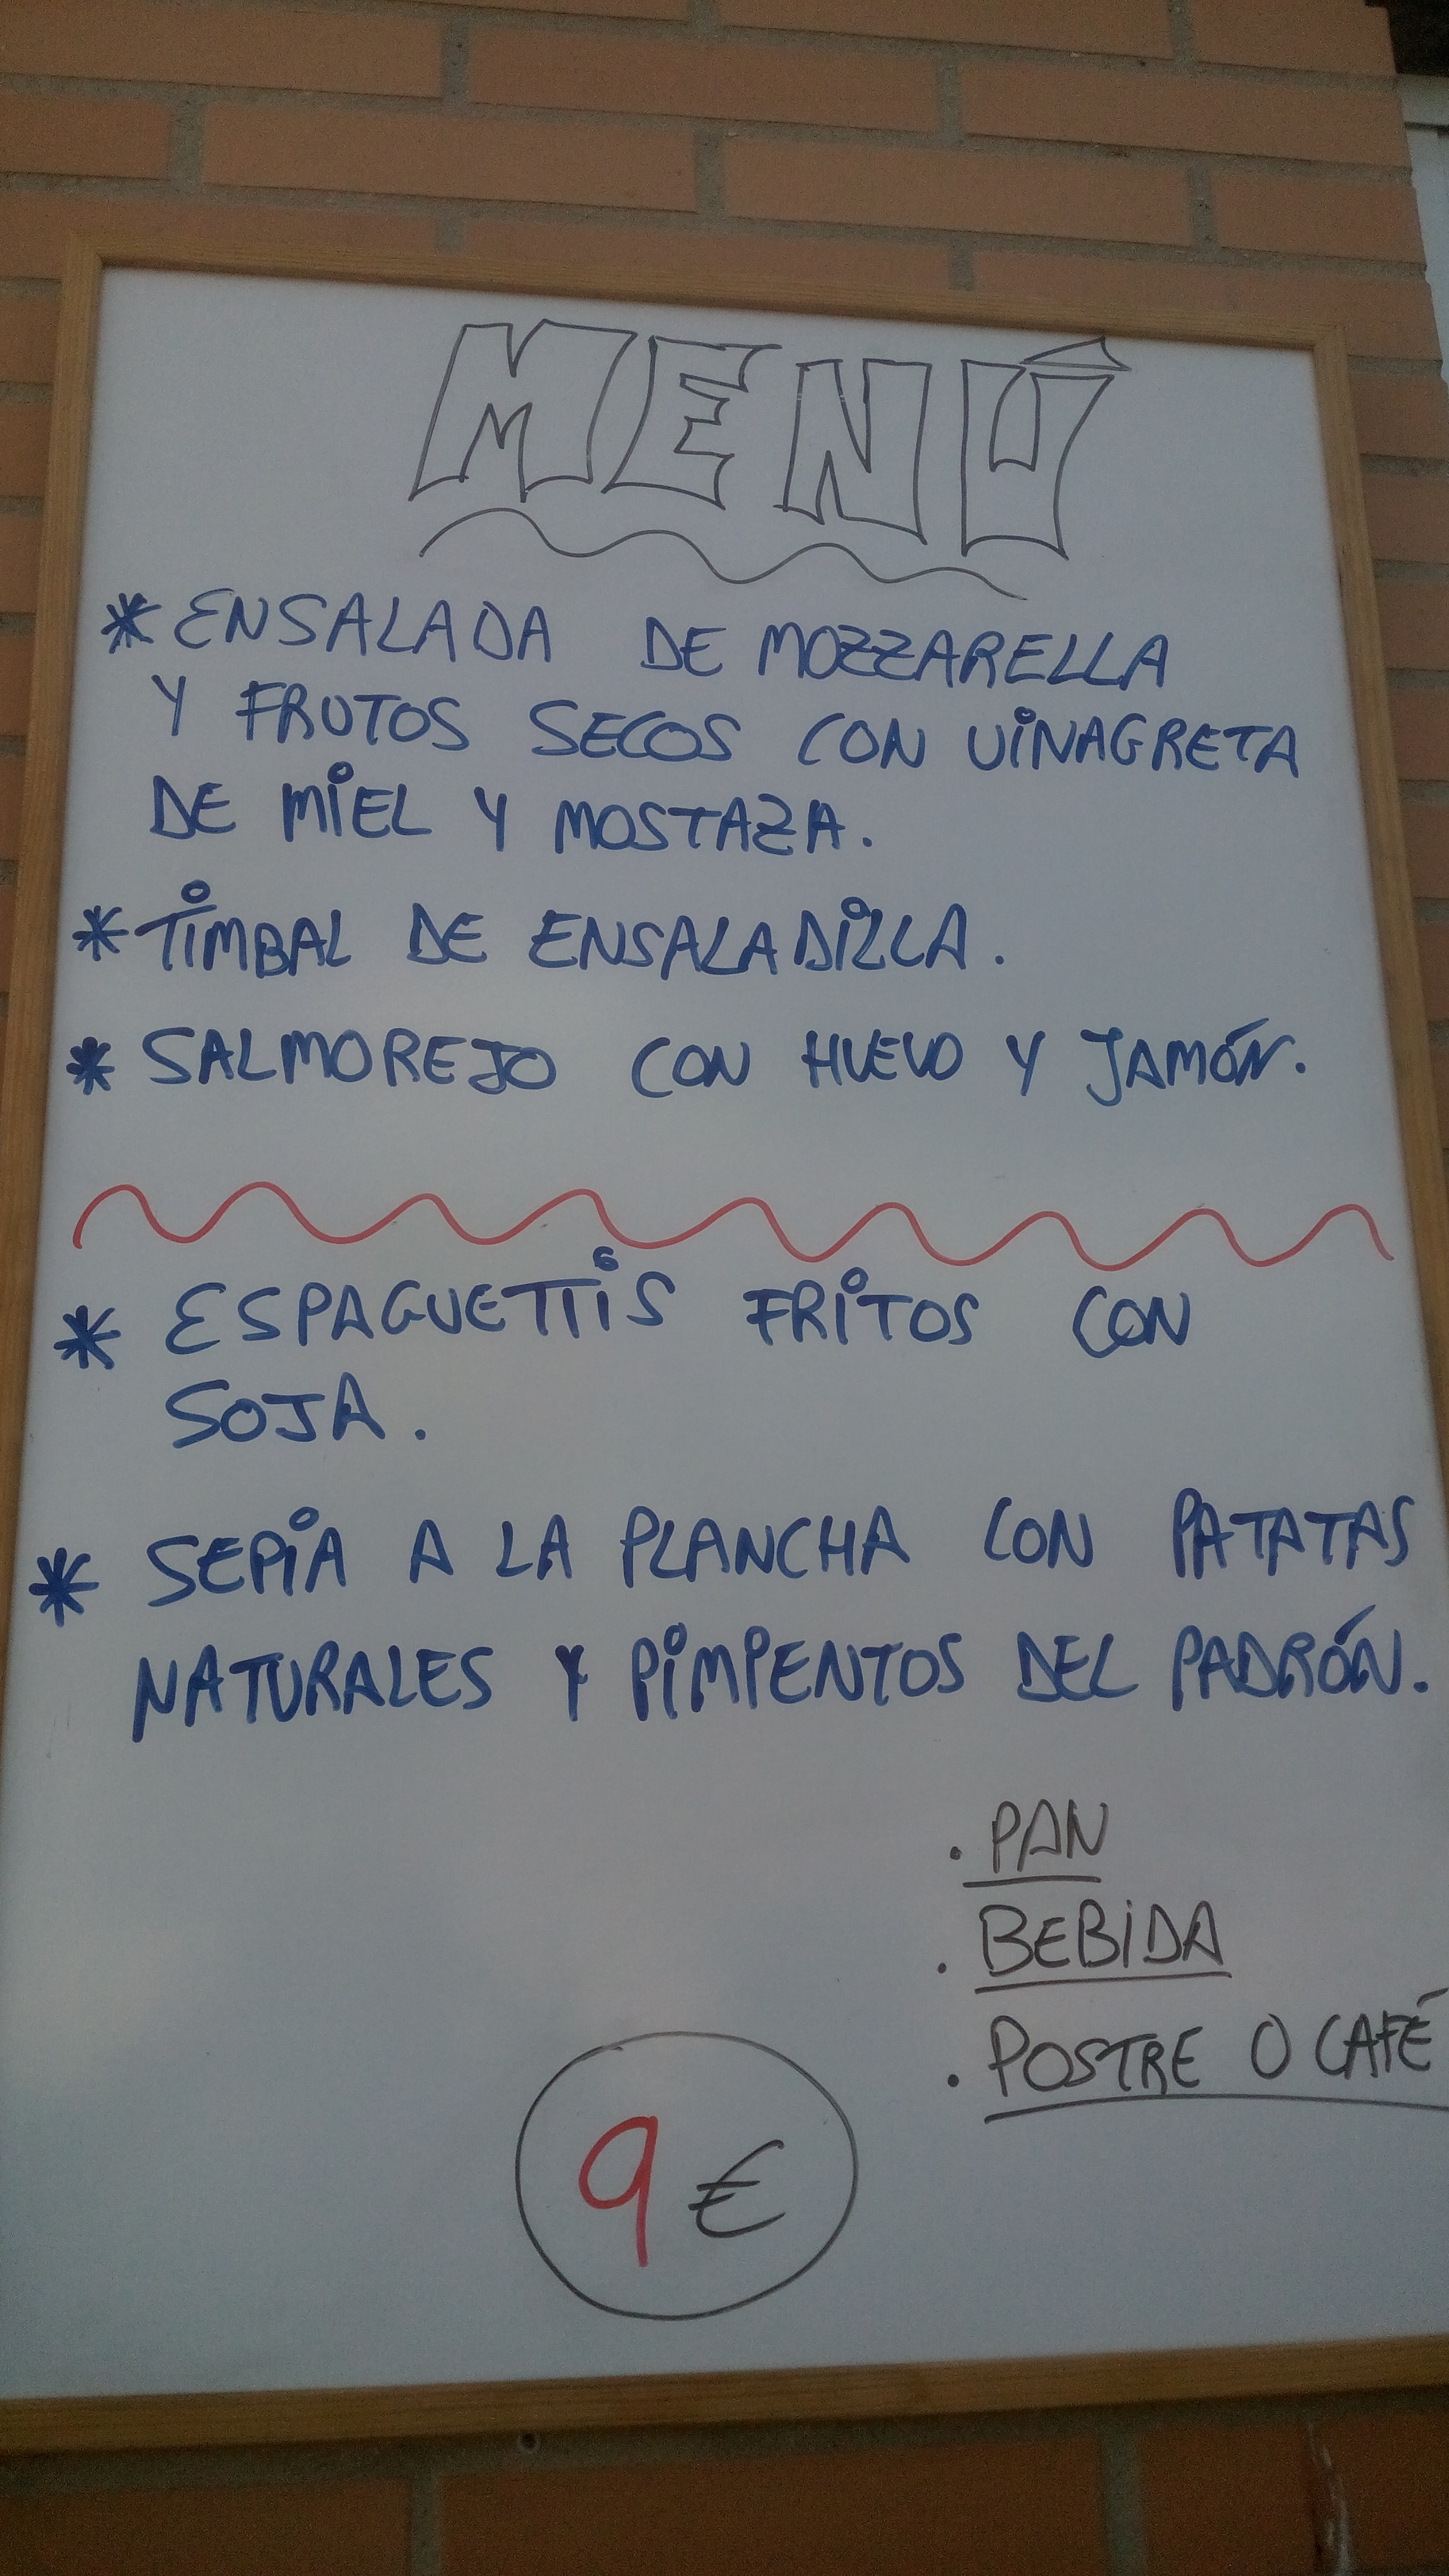 MENÚ
* ENSALADA DE MOZZARELLA
Y FRUTOS SECOS CON VINAGRETA
DE MIEL Y MOSTAZA.
* TIMBAL DE ENSALADILLA.
* SALMOREJO CON HUEVO Y JAMÓN.
* ESPAGUETTIS FRITOS CON
SOJA.
* SEPIA A LA PLANCHA CON PATATAS
NATURALES Y PIMIENTOS DEL PADRÓN.
. PAN
. BEBIDA
. POSTRE O CAFÉ
9 €